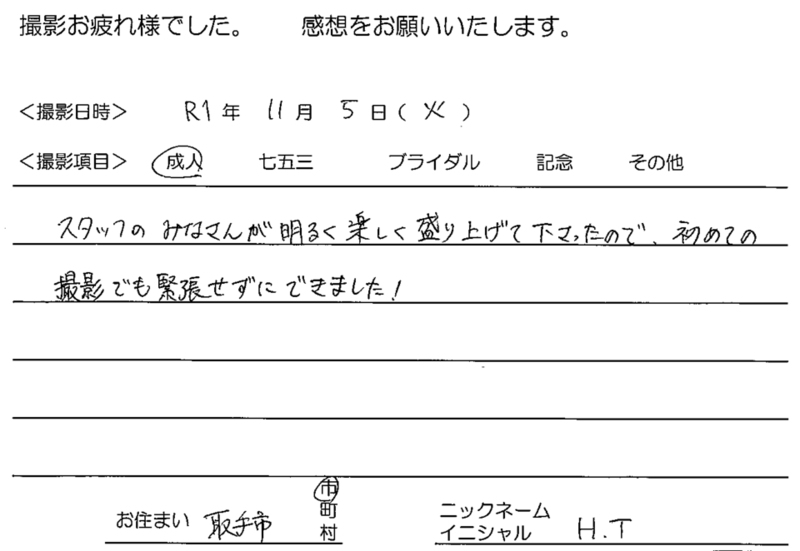 撮影お疲れ様でした。 感想をお願いいたします。
＜撮影日時＞ R1年 11月 5日（火）
＜撮影項目＞ 成人 七五三 ブライダル 記念 その他
スタッフの みなさんが 明るく 楽しく 盛り上げて 下さったので、初めての
撮影でも緊張せずに できました！
お住まい 取手市 市
町
村
ニックネーム
イニシャル H.T